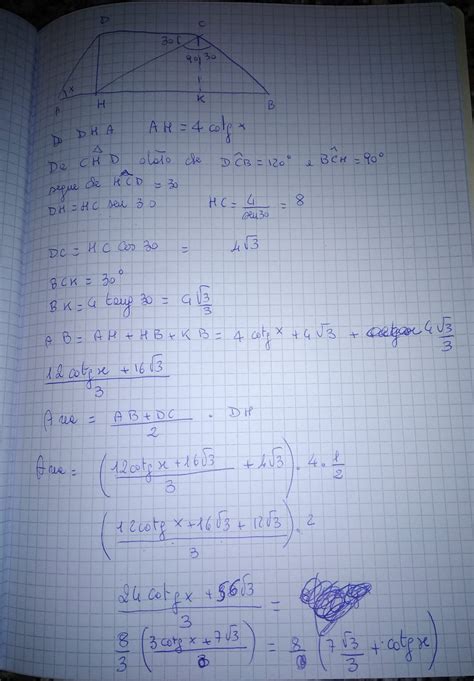 D C
30
90 30
x
A H K B
Da DHA AH = 4 cotg x
Da CHD dato che DĈB = 120° e BĈH = 90°
segue che HĈD = 30
DH = HC sen 30 HC = 4/sen30 = 8
DC = HC cos 30 = 4√3
BCK = 30°
BK = 4 tang 30 = 4√3/3
AB = AH + HB + KB = 4 cotg x + 4√3 + 4√3/3
12 cotg x + 16√3/3
Area = AB + DC/2 · DH
Area = (12 cotg x + 16√3/3 + 4√3) · 4 · 1/2
(12 cotg x + 16√3 + 12√3/3) · 2
24 cotg x + 56√3/3 =
8/3 (3 cotg x + 7√3) = 8 (7√3/3 + cotg x)